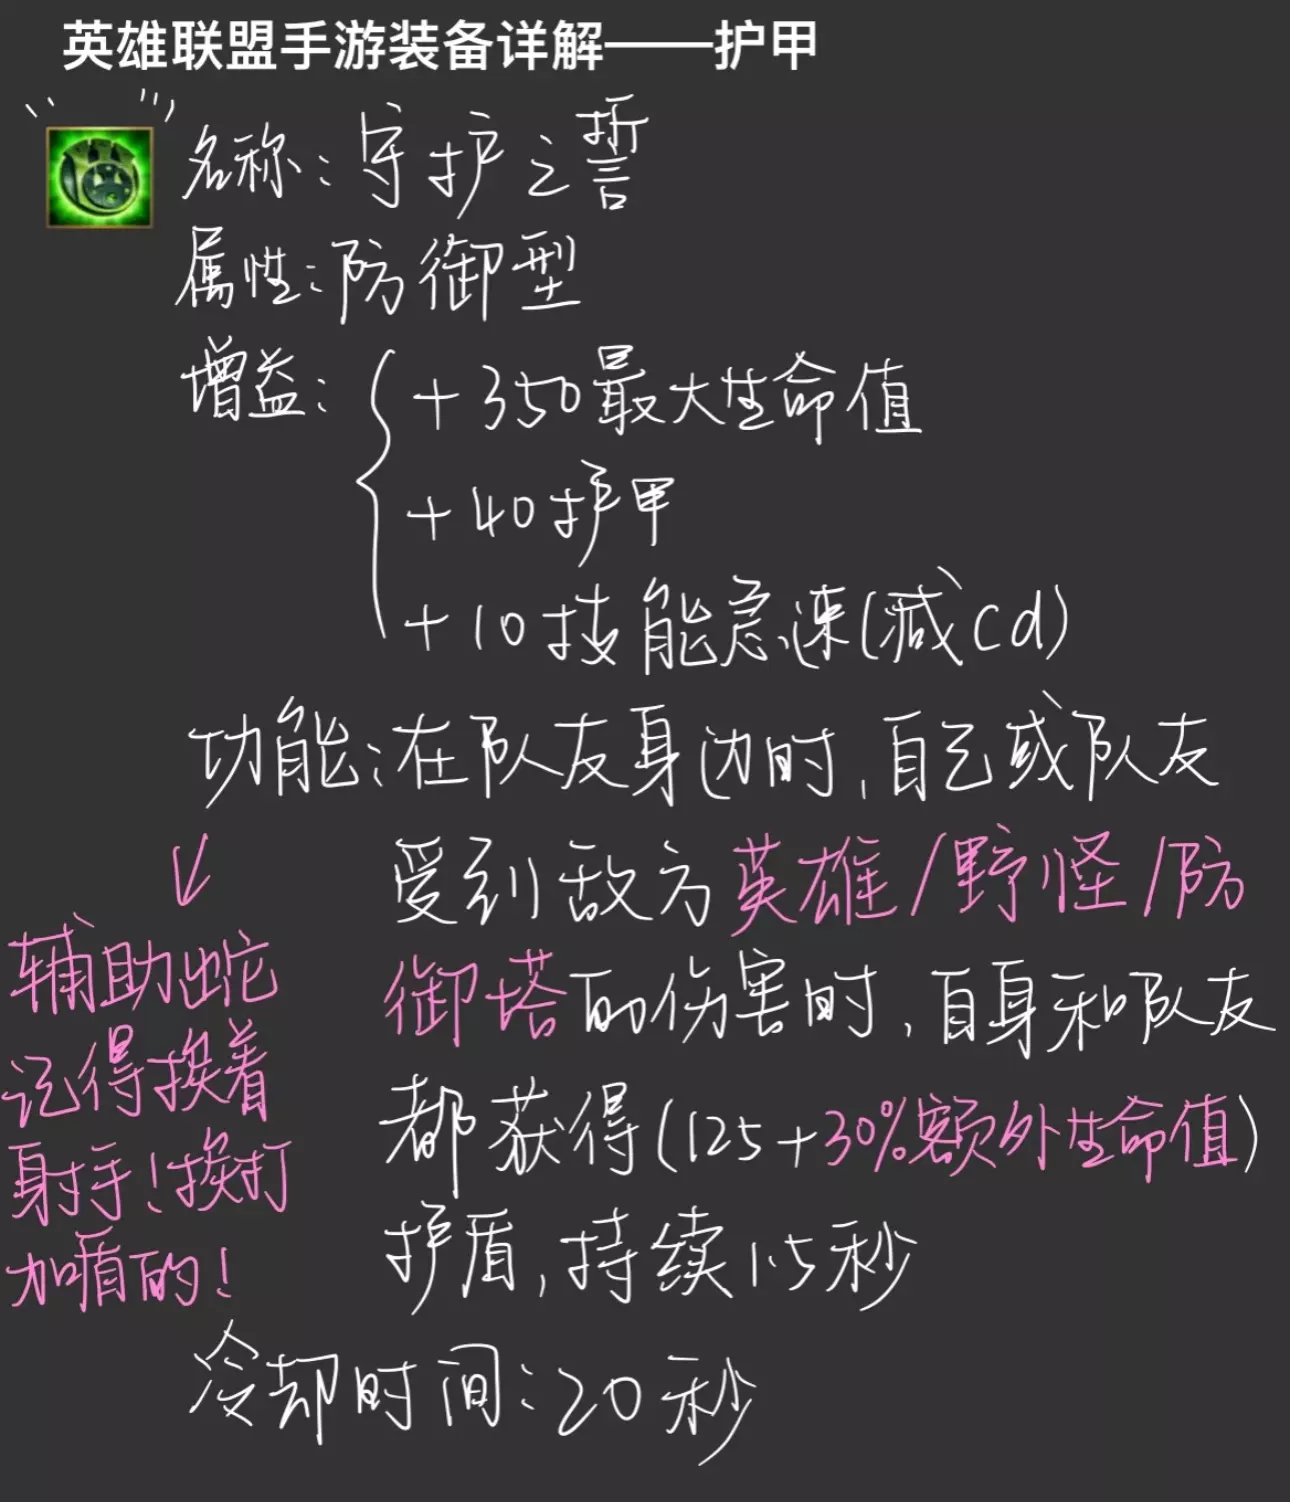 英雄联盟手游装备详解——护甲
名称：守护之誓
属性：防御型
增益：+350最大生命值
+40护甲
+10技能急速(减cd)
功能：在队友身边时，自己或队友
受到敌方英雄/野怪/防
御塔的伤害时，自身和队友
都获得(125+30%额外生命值)
护盾，持续1.5秒
辅助蛇
记得挨着
射手！挨打
加盾的！
冷却时间：20秒